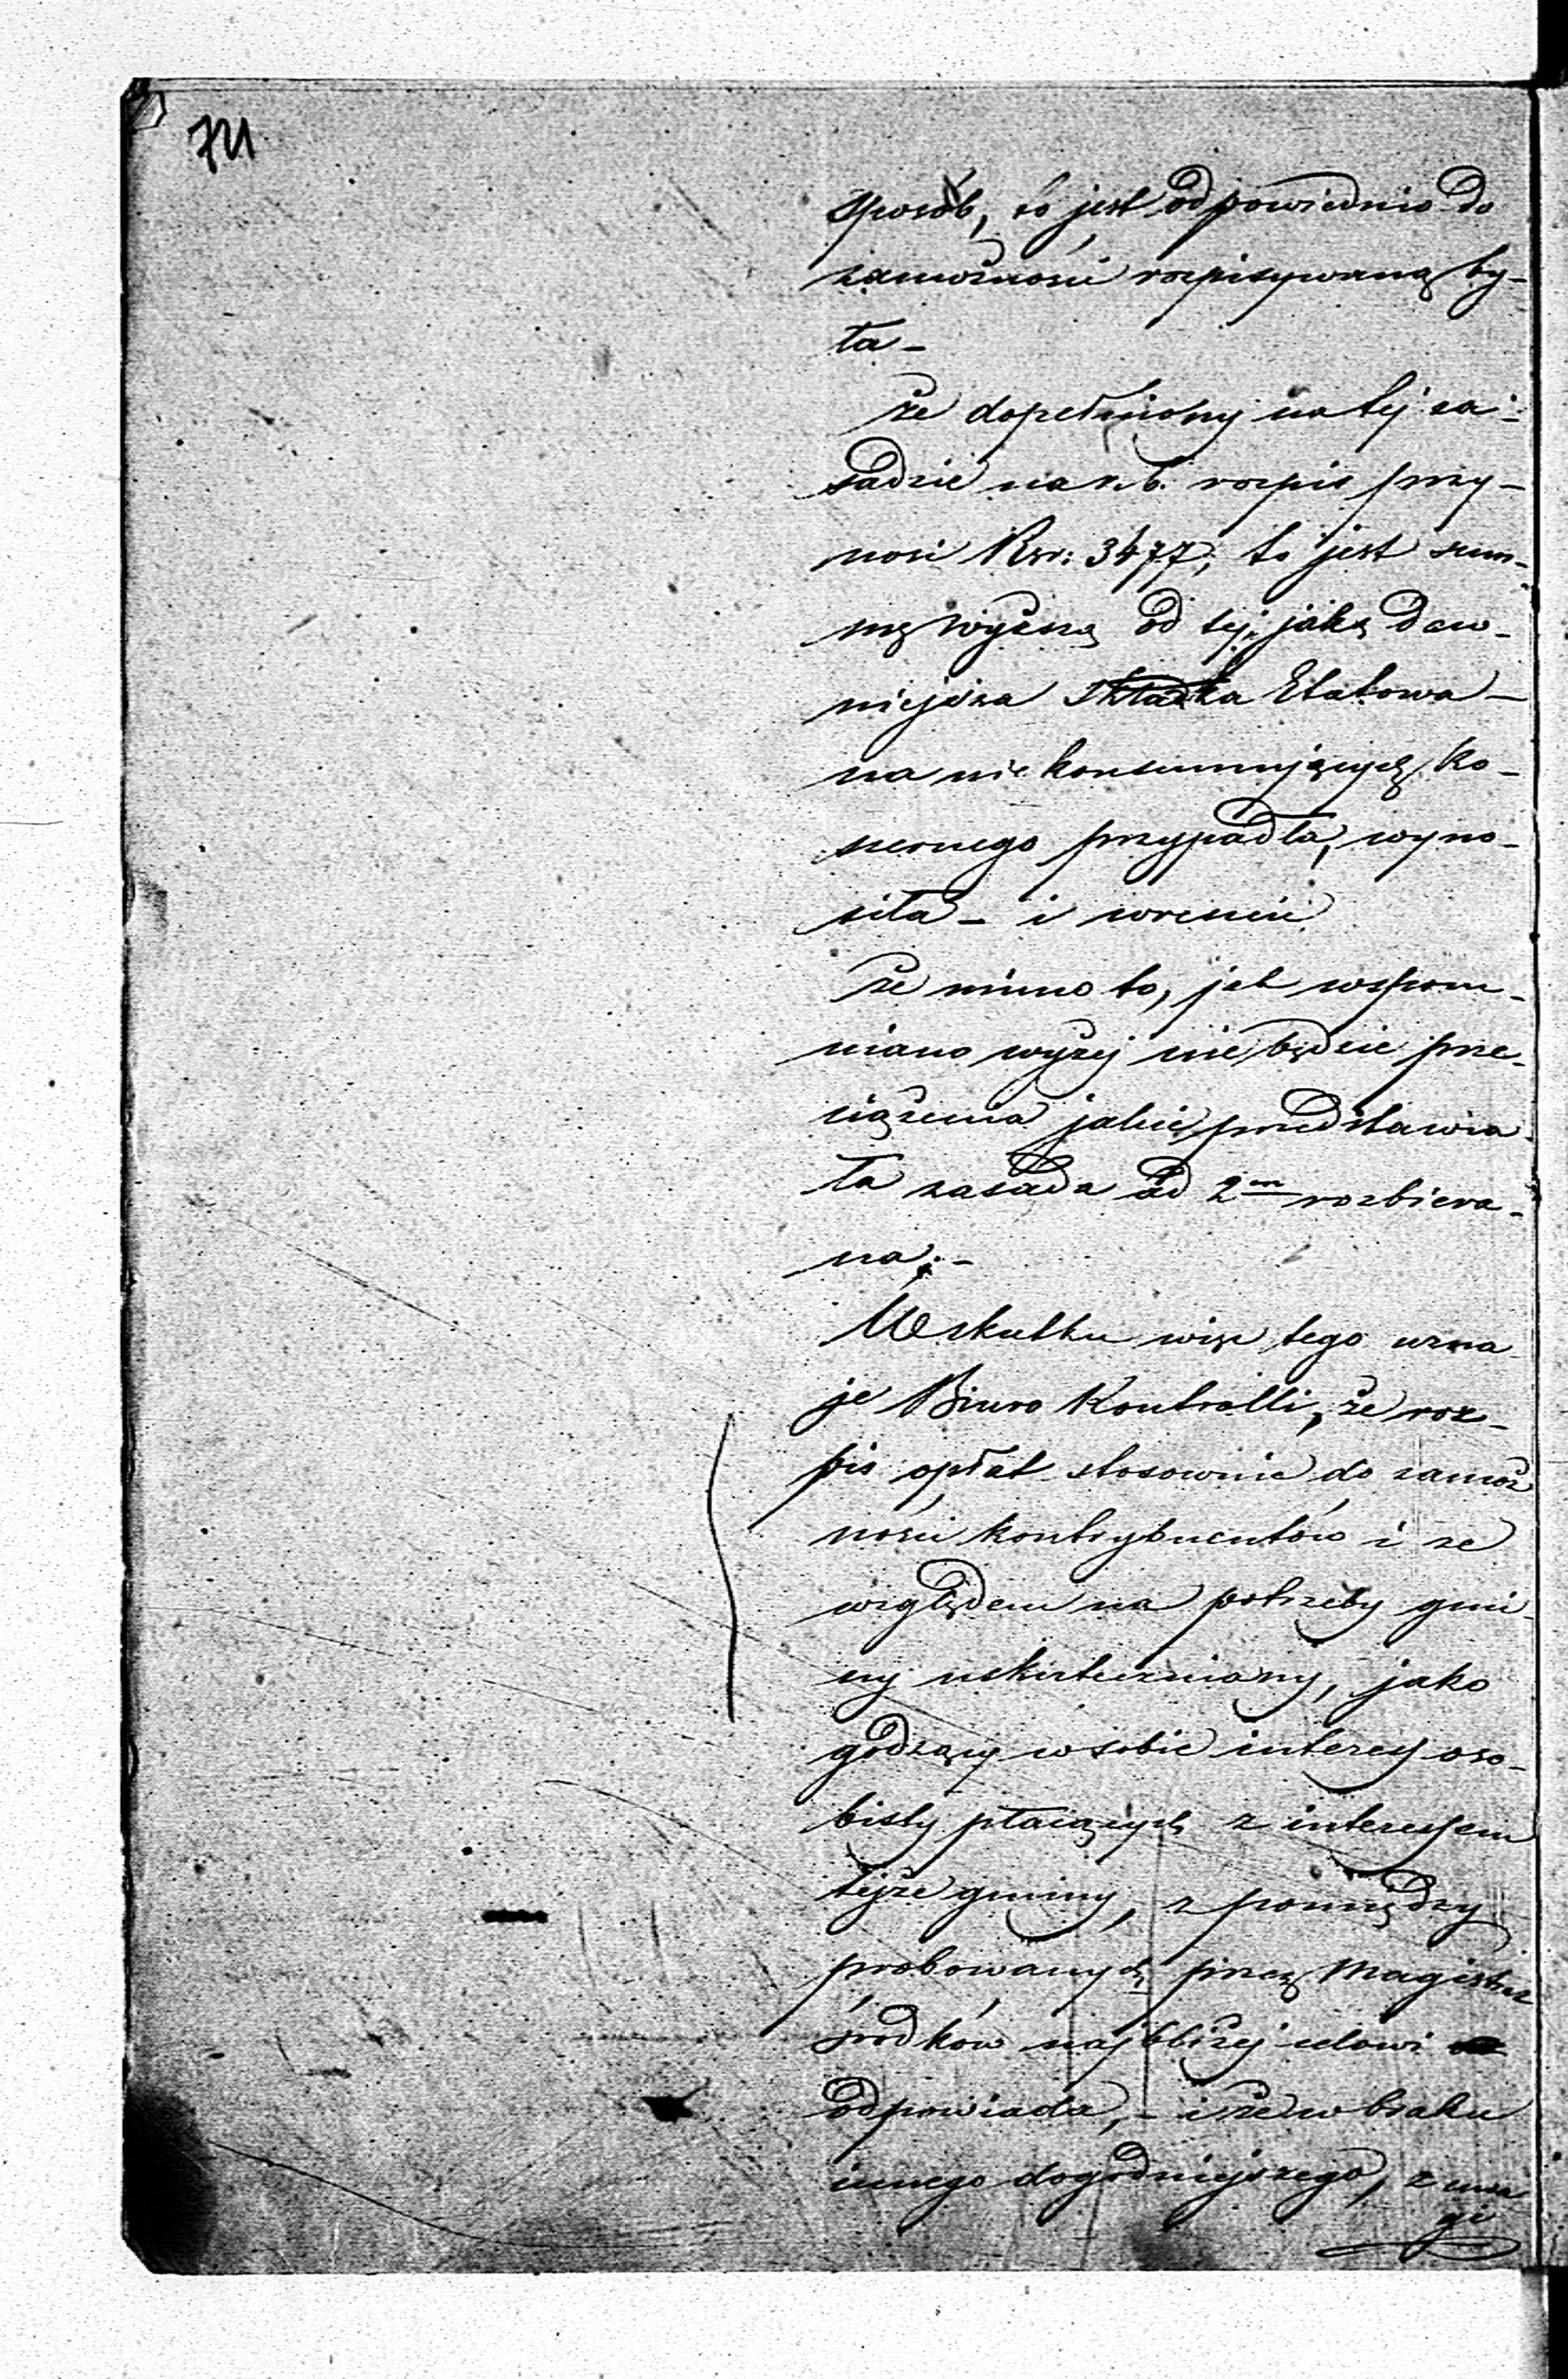 711
sposób, to jest odpowiednio do
zamożności rozpisywaną by-
ła –
że dopełniony na tej za-
sadzie na r. b. rozpis przy-
nosi Rsr: 3477, to jest sum-
mę wyższą od tej, jaką daw-
niejsza Składka Etatowa –
na nie konsumujących ko-
szernego przypadła, wyno-
siła – i wreszcie
że mimo to, jak wspom-
niano wyżej nie będzie prze-
ciążenia jakie przedstawia-
ła zasada ad 2m rozbiera-
na. –
W skutku więc tego uzna
je Biuro Kontrolli, że roz-
pis opłat stosownie do zamoż
ności kontrybuentów i ze
względem na potrzeby gmi-
ny uskuteczniany, jako
godzący w sobie interes oso-
bisty płacących z interessem
tejże gminy, z pomiędzy
probowanych przez Magistrat
środków najbliżej celowi
odpowiada, – i że w braku
innego dogodniejszego, z uwa
gi